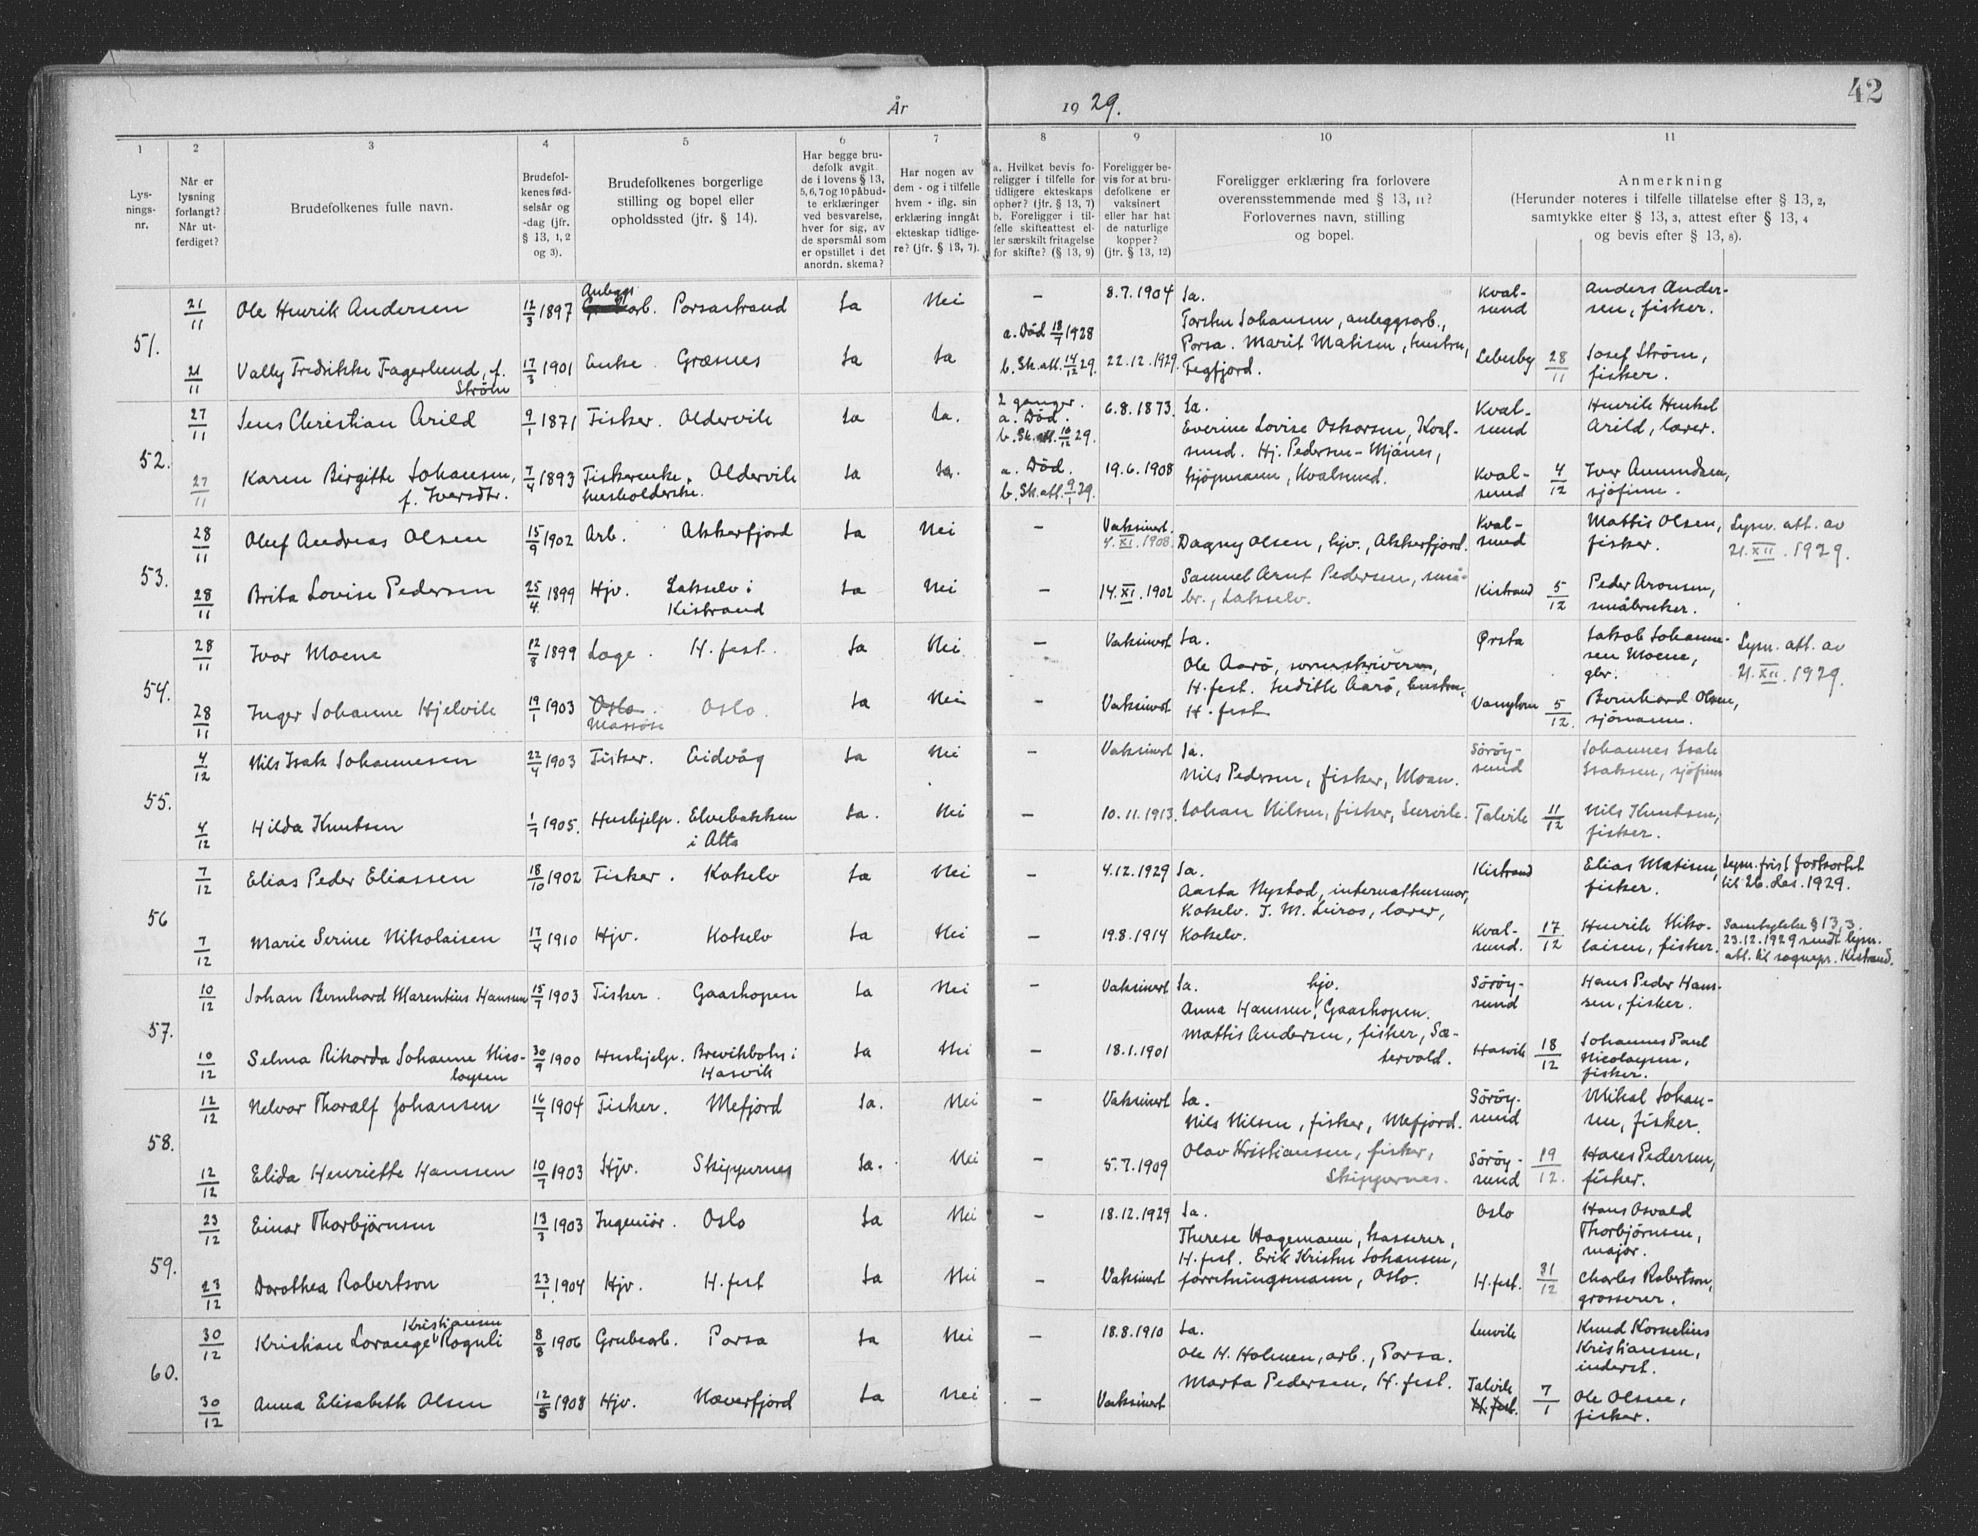 42
År 1929.
1 2 3 4 5 6 7 8 9 10 11
Lysningsnr.
Når er lysning forlangt? Når utferdiget?
Brudefolkenes fulle navn.
Brudefolkenes fødselsår og -dag (jfr. § 13, 1, 2 og 3).
Brudefolkenes borgerlige stilling og bopel eller opholdssted (jfr. § 14).
Har begge brudefolk avgit de i lovens § 13, 5, 6, 7 og 10 påbudte erklæringer ved besvarelse, hver for sig, av de spørsmål som er opstillet i det anordn. skema?
Har nogen av dem - og i tilfelle hvem - iflg. sin erklæring inngått ekteskap tidligere? (jfr. § 13, 7).
a. Hvilket bevis foreligger i tilfelle for tidligere ekteskaps opher? (jfr. § 13, 7) b. Foreligger i tilfelle skifteattest eller særskilt fritagelse for skifte? (§ 13, 9)
Foreligger bevis for at brudefolkene er vaksinert eller har hat de naturlige kopper? (jfr. § 13, 12)
Foreligger erklæring fra forlovere overensstemmende med § 13, 11? Forlovernes navn, stilling og bopel.
Anmerkning (Herunder noteres i tilfelle tillatelse efter § 13, 2, samtykke efter § 13, 3, attest efter § 13, 4 og bevis efter § 13, 8).
51.
21/11 Ole Henrik Andersen 12/3 1897 Anleggsarb. Porsastrand Ja Nei — 8.7.1904 Ja. Kvalsund Anders Andersen, fisker.
Torsten Johansen, anleggsarb., Porsa. Marit Matisen, hustru, Fegfjord.
21/11 Vally Fredrikke Fagerlund, f. Strøm 17/3 1901 Enke. Græsnes Ja Ja a. Død 18/1 1928 b. Sk.att. 14/12 29. 22.12.1929 Lebesby 28/11 Josef Strøm, fisker.
52.
27/11 Jens Christian Arild 9/1 1871 Fisker. Oldervik Ja Ja. 2 ganger. a. Død. b. Sk.att. 10/12 29. 6.8.1873. Ja. Kvalsund Henrik Henkel Arild, lærer.
Everine Lovise Oskarsen, Kvalsund. Hj. Pedersen-Mjånes, sjøpmann, Kvalsund.
27/11 Karen Birgitte Johansen, f. Iversdtr. 7/4 1893 Fiskerenke, husholderske. Oldervik Ja Ja. a. Død. b. Sk.att. 9/1 29. 19.6.1908 Kvalsund 4/12 Iver Amundsen, sjøfinn.
53.
28/11 Oluf Andreas Olsen 15/9 1902 Arb. Akkarfjord Ja Nei — Vaksinert 4.XI.1908 Dagny Olsen, hjv., Akkarfjord. Kvalsund Mattis Olsen, fisker. Lysn. att. av 21.XII.1929.
28/11 Brita Lovise Pedersen 25/4 1899 Hjv. Lakselv i Kistrand Ja Nei — 14.XI.1902 Samuel Arnt Pedersen, småbr., Lakselv. Kistrand 5/12 Peder Aronsen, småbruker.
54.
28/11 Ivar Moene 12/8 1899 Læge. H.fest. Ja Nei — Vaksinert Ja. Ørsta Jakob Johannesen Moene, gbr. Lysn. att. av 21.XII.1929.
Ole Aarø, sorenskriver, H.fest. Judith Aarø, hustru, H.fest
28/11 Inger Johanne Hjelvik 19/1 1903 Oslo. Massøse Oslo. Ja Nei — Vaksinert Vanylven 5/12. Bernhard Olsen, sjømann.
55.
4/12 Nils Isak Johannesen 22/4 1903 Fisker. Eidvåg Ja Nei — Vaksinert Ja. Sørøysund Johannes Isak Isaksen, sjøfinn
Nils Pedersen, fisker, Moan.
4/12 Hilda Knutsen 1/7 1905. Hushjelp. Elvebakken i Alta Ja. Nei — 10.11.1913. Johan Nilsen, fisker, Lervik. Talvik 11/12 Nils Knutsen, fisker.
56
7/12 Elias Peder Eliassen 18/10 1902 Fisker. Kokelv Ja Nei — 4.12.1929 Ja. Kistrand Elias Matisen, fisker. Lysn. frist forkortet til 26. des. 1929.
Aasta Nystad, internathusmor, Kokelv. J. M. Leiros, lærer, Kokelv.
7/12 Marie Serine Nikolaisen 17/4 1910 Hjv. Kokelv Ja Nei — 19.8.1914 Kvalsund. 17/12 Henrik Nikolaisen, fisker. Samtykke § 13, 3. 23.12.1929 sendt lysn. att. til sognepr. Kistrand.
57.
10/12 Johan Bernhard Marentius Hansen 15/7 1903 Fisker. Gaashopen Ja Nei — Vaksinert Ja. Sørøysund Hans Peder Hansen, fisker.
Anna Hanssen, hjv. Gaashopen. Mattis Andersen, fisker, Sætervold.
10/12 Selma Rikarda Johanne Nicolaysen 30/9 1900 Hushjelp. Breivikbotn i Hasvik Ja Nei — 18.1.1901 Hasvik 18/12 Johannes Paul Nicolaysen, fisker.
58.
12/12 Nelvar Thoralf Johansen 16/7 1904 Fisker. Mefjord Ja. Nei — Vaksinert Ja. Sørøysund Mikal Johansen, fisker.
Nils Nilsen, fisker, Mefjord. Olav Kristiansen, fisker, Skippernes.
12/12 Elida Henriette Hanssen 10/7 1903 Hjv. Skippernes Ja. Nei — 5.7.1909 Sørøysund 19/12. Hans Pedersen, fisker.
59.
23/12 Einar Thorbjørnsen 13/3 1903 Ingeniør. Oslo Ja Nei — 18.12.1929 Ja. Oslo Hans Osvald Thorbjørnsen, major.
Therese Hagemann, kasserer, H.fest. Erik Kristen Johansen, forretningsmann, Oslo.
23/12 Dorothea Robertson 23/1 1904 Hjv. H.fest Ja Nei — Vaksinert H.fest. 31/12 Charles Robertson, grosserer.
60.
30/12 Kristian Lorange Kristiansen Roguli 8/8 1906 Grubearb. Porsa Ja Nei — 18.8.1910 Ja. Lenvik Knud Kornelius Kristiansen, inderst.
Ole H. Holmen, arb., Porsa. Marta Pedersen, H.fest.
30/12 Anna Elisabeth Olsen 12/5 1908 Hjv. Næverfjord Ja Nei — Vaksinert Talvik H.fest. 7/1 Ole Olsen, fisker.